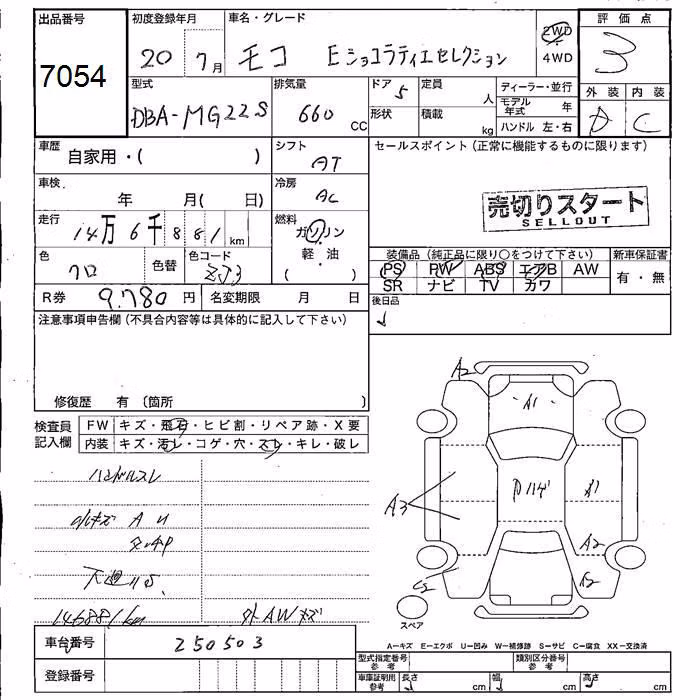 出品番号 初度登録年月 車名・グレード 評価点
7054 20 7月 モコ Eショコラティエセレクション 2WD・4WD 3
型式 排気量 ドア 定員 ディーラー・並行 外装 内装
DBA-MG22S 660 CC 5 人 モデル年式 年 D C
形状 積載 kg ハンドル 左・右
車歴 自家用・( ) シフト AT セールスポイント (正常に機能するものに限ります)
車検 年 月( 日) 冷房 AC
売切りスタート
SELLOUT
走行 14万6千881km 燃料 ガソリン・軽・油 ( )
色 クロ 色替 色コード ZJ3
装備品 (純正品に限り○をつけて下さい) 新車保証書
PS PW ABS エアB AW 有・無
SR ナビ TV カワ
R券 9.780 円 名変期限 月 日 後日品
注意事項申告欄 (不具合内容等は具体的に記入して下さい)
修復歴 有 (箇所 )
検査員記入欄 FW キズ・飛石・ヒビ割・リペア跡・X要
内装 キズ・汚レ・コゲ・穴・スレ・キレ・破レ
ハンドルスレ
小キズ A U
タッチP
下廻りS
146881km 外AWキズ
A2
A1
A3
Pハゲ
A1
A2
A2
C2
スペア
A-キズ E-エクボ U-凹み W-補修跡 S-サビ C-腐食 XX-交換済
車台番号 250503
登録番号
型式指定番号 参考 類別区分番号 参考
車庫証明用 参考 長さ cm 幅 cm 高さ cm